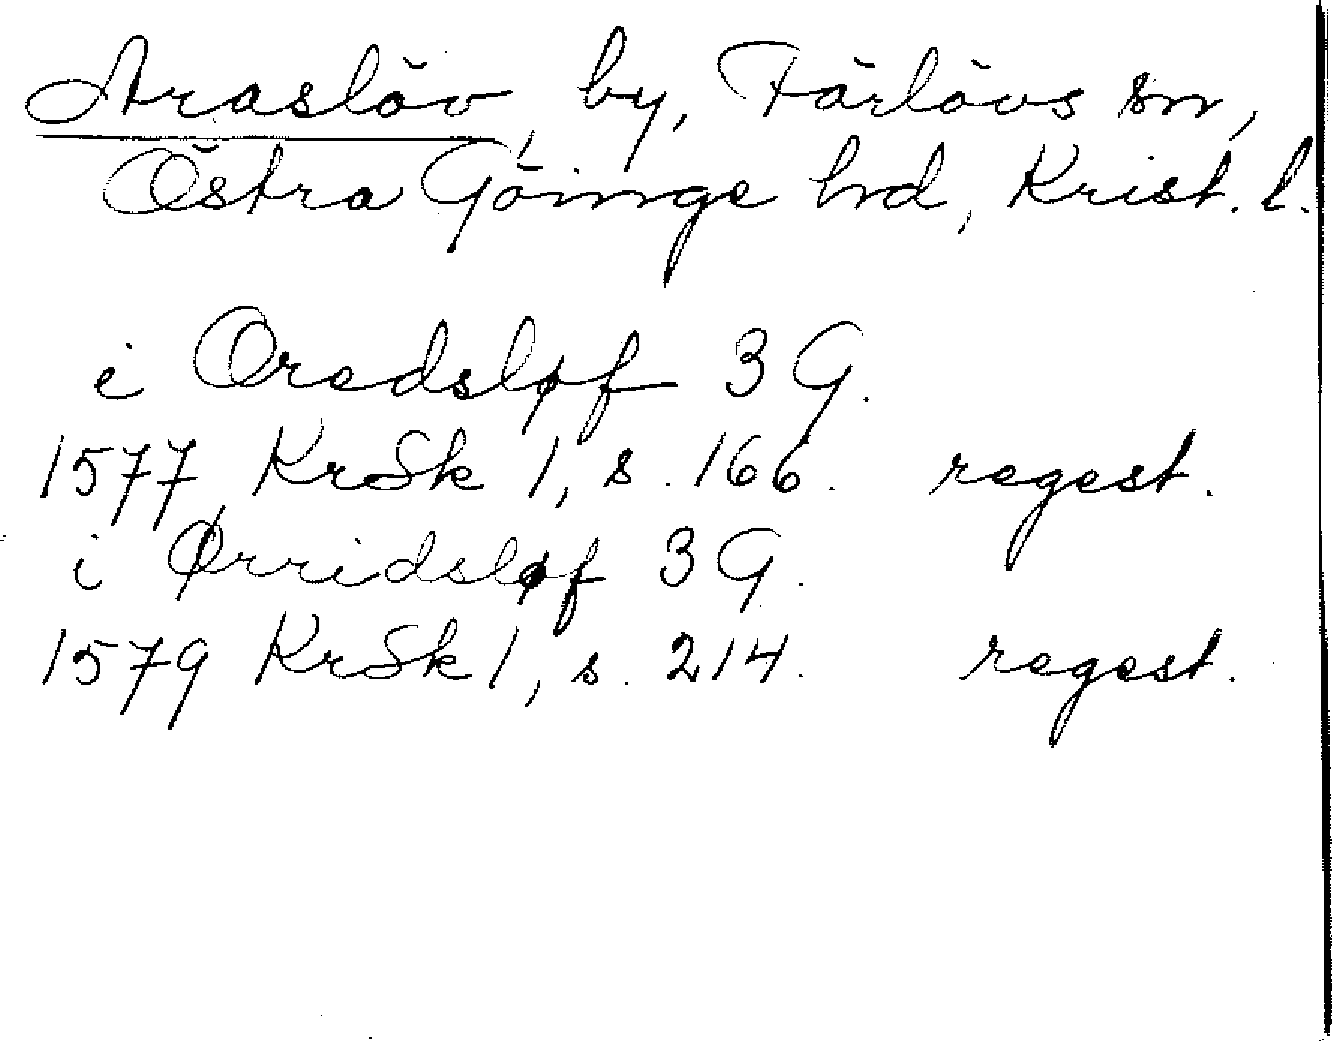 Araslöv, by, Färlövs sn,
Östra Göinge hd, Krist. l.
i Oredsløf 3 G.
1577 KrSk 1, s. 166. regest.
i Ørridsløf 3 G.
1579 KrSk 1, s. 214. regest.